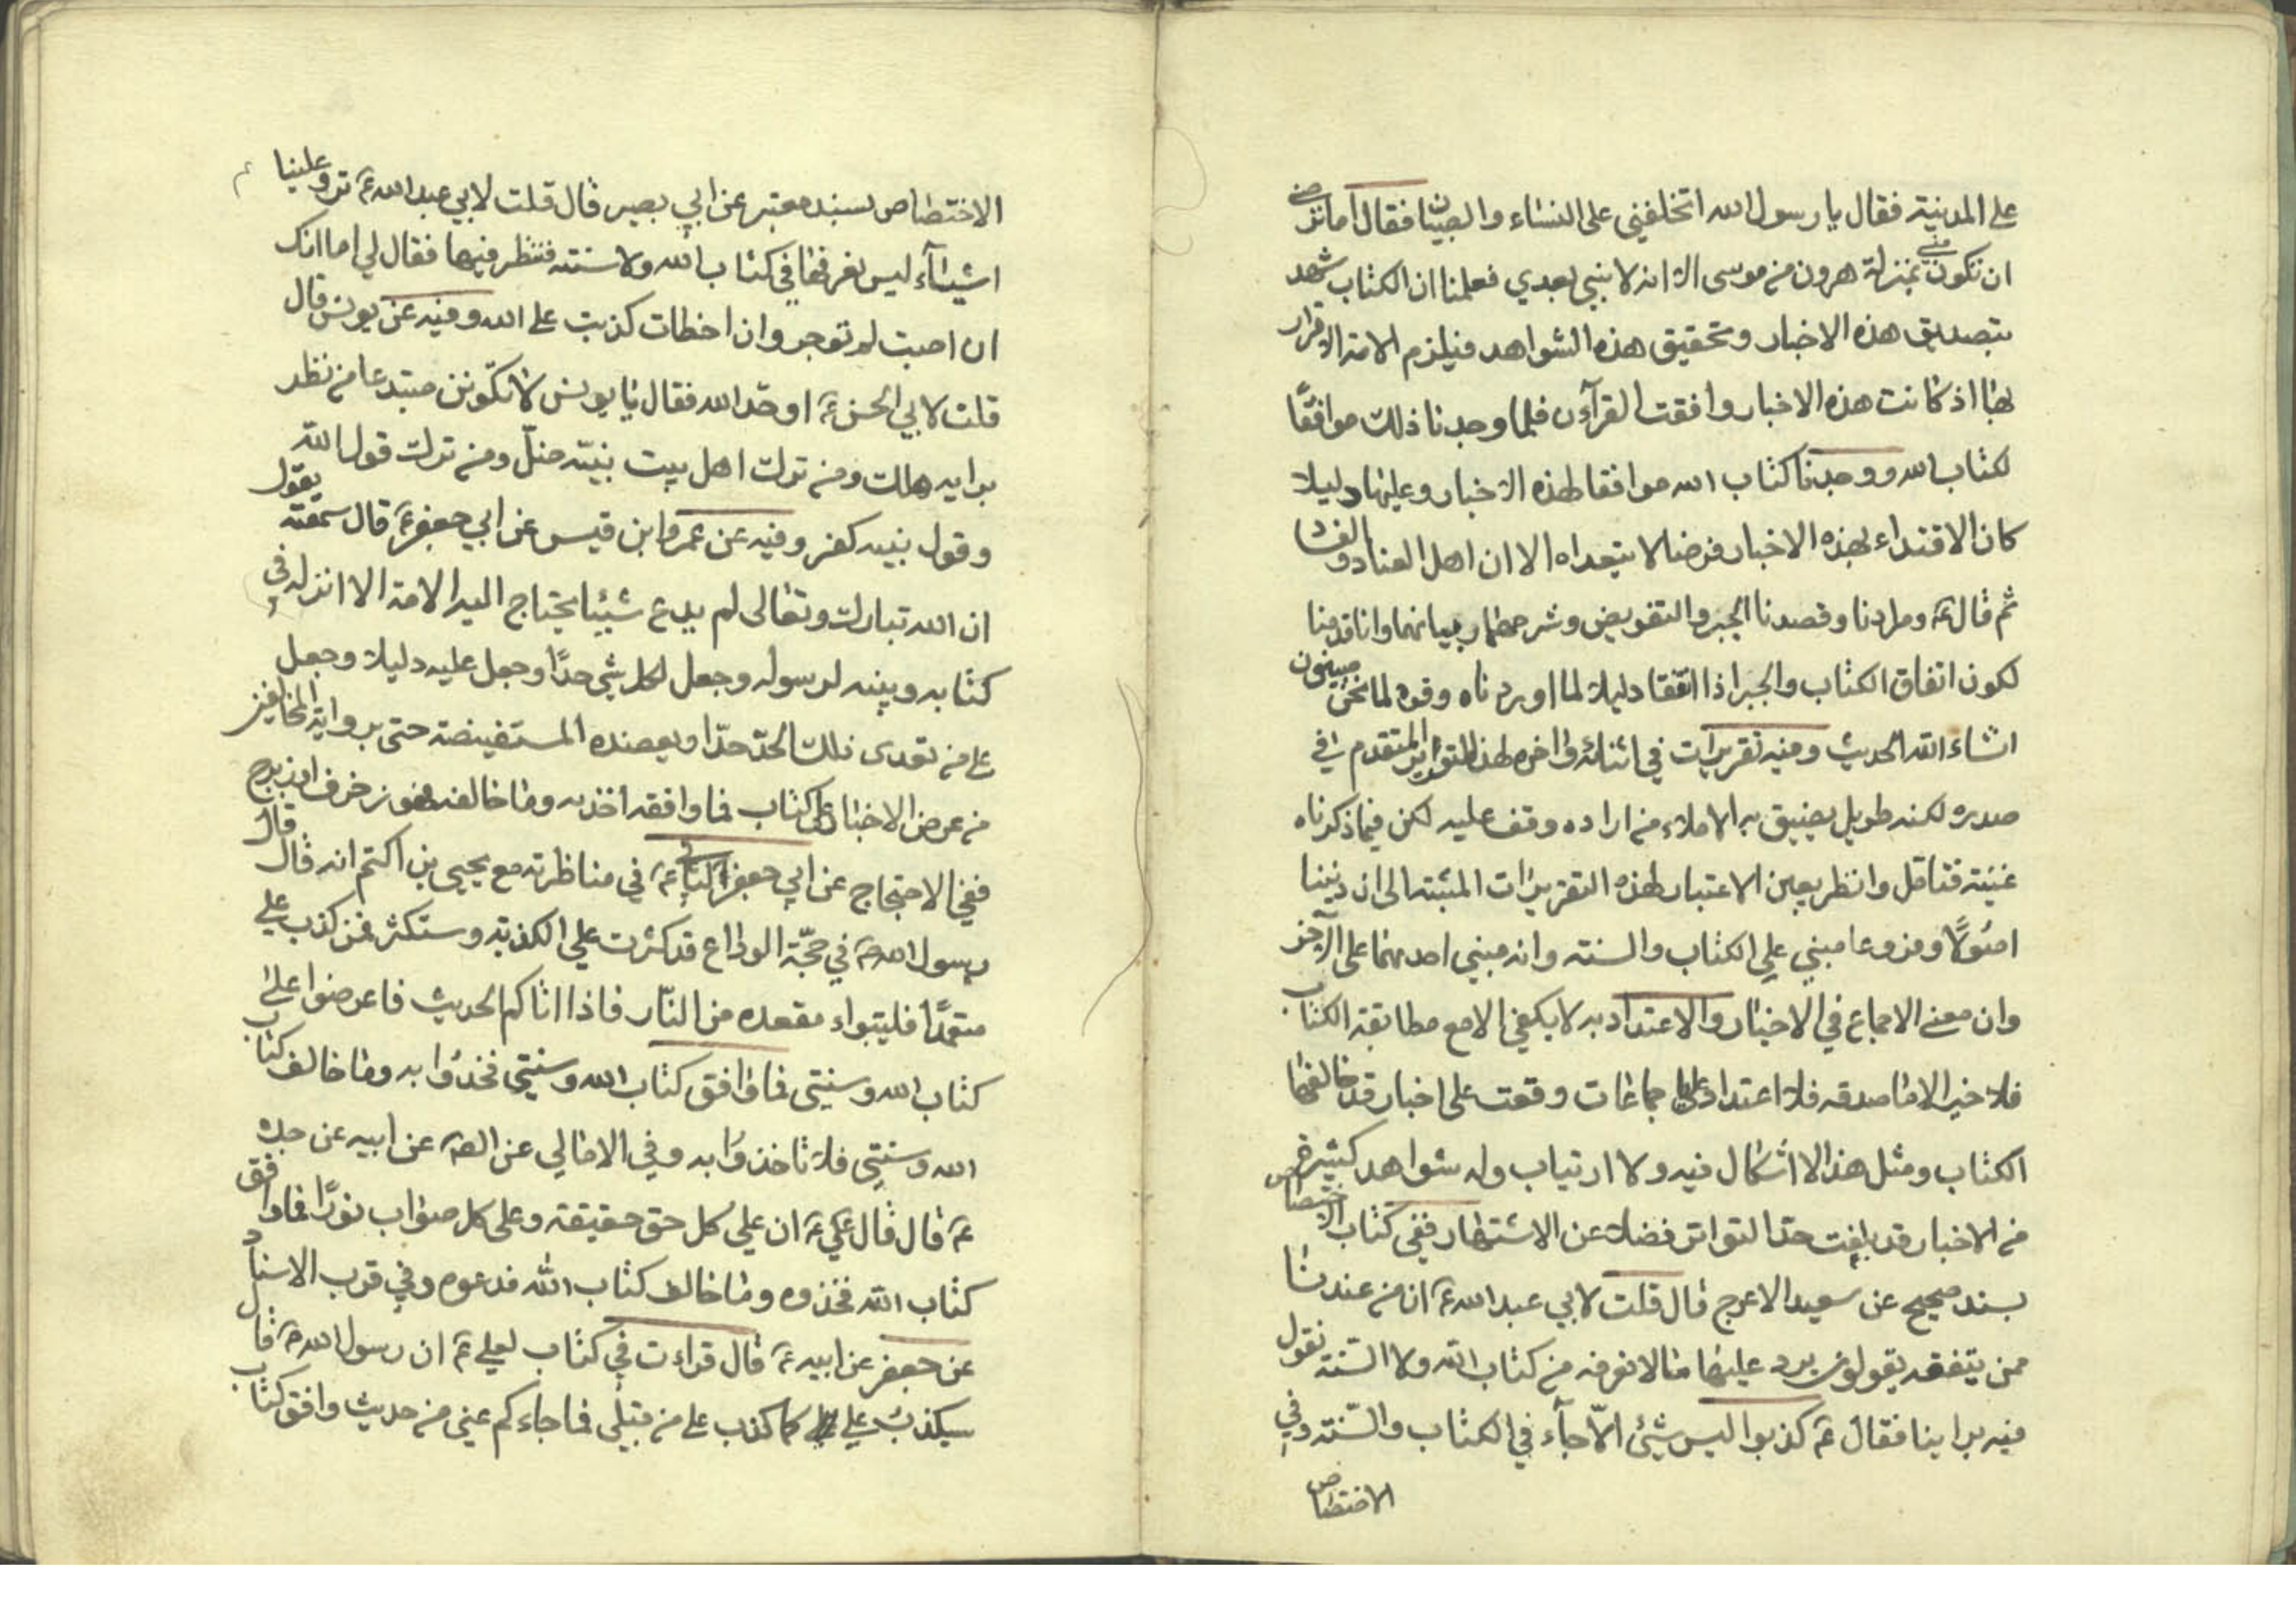 على المدينة فقال يا رسول الله اتخلفني على النساء والصبيان فقال اما ترضى
ان تكون مني بمنزلة هرون من موسى الا انه لا نبي بعدي فعلمنا ان الكتاب شهد
بتصديق هذه الاخبار وتحقيق هذه الشواهد فيلزم الامة الاقرار
بها اذ كانت هذه الاخبار وافقت القرآن فلما وجدنا ذلك موافقًا
لكتاب الله ووجدنا كتاب الله موافقا لهذه الاخبار وعليها دليلا
كان الاقتداء بهذه الاخبار فرضا لا يتعداه الا ان اهل العناد والفساد
ثم قال ع ومرادنا وقصدنا الجبر والتفويض وشرحهما وبيانهما وانا قدمنا
لكون اتفاق الكتاب والخبر اذا اتفقا دليلا لما اوردناه وقوة لما نحن مبينون
انشاء الله الحديث وفيه تقريرات في اثنائه واخره لهذا التواتر المتقدم في
صدره لكنه طويل يضيق به الاملاء من اراده وقف عليه لكن فيما ذكرناه
غنية فتامل وانظر بعين الاعتبار لهذه التقريرات المثبتة الى ان ديننا
اصولًا وفروعا مبني على الكتاب والسنة وانه مبني احدهما على الآخر
وان معنى الاجماع في الاخبار والاعتداد به لا يكفي الا مع مطابقة الكتاب
فلا خير الا ما صدقه فلا اعتداد على جماعات وقعت على اخبار قد خالفها
الكتاب ومثل هذا لا اشكال فيه ولا ارتياب وله شواهد كثيرة
من الاخبار قد بلغت حد التواتر فضلا عن الاشتهار ففي كتاب الاختصاص
بسند صحيح عن سعيد الاعرج قال قلت لابي عبد الله ع ان من عندنا
ممن يتفقه يقولون يرد علينا ما لا نعرفه من كتاب الله ولا السنة نقول
فيه براينا فقال ع كذبوا ليس شيئ الّا جآء في الكتاب والسّنة وفي
الاختصاص
الاختصاص بسند معتبر عن ابي بصير قال قلت لابي عبد الله ع ترد علينا
اشيآء ليس نعرفها في كتاب الله ولا سنته فننظر فيها فقال لي اما انك
ان اصبت لم توجر وان اخطات كذبت على الله وفيه عن يونس قال
قلت لابي الحسن ع اوحّد الله فقال يا يونس لا تكونن مبتدعا من نظر
برايه هلك ومن ترك اهل بيت نبيّه ضلّ ومن ترك قول الله
وقول نبيه كفر وفيه عن عمرو ابن قيس عن ابي جعفر ع قال سمعته يقول
ان الله تبارك وتعالى لم يدع شيئا يحتاج اليه الامة الا انزله في
كتابه وبينه لرسوله وجعل لكل شي حدًا وجعل عليه دليلا وجعل
على من تعدى ذلك الحدّ حدّا ويعضده المستفيضة حتى برواية المخالفين
من عرض الاخبار على كتاب فما وافقه اخذ به وما خالفه فهو زخرف او يدرج
ففي الاحتجاج عن ابي جعفر الثاني ع في مناظرته مع يحيى بن اكتم انه قال قال
رسول الله ص في حجّة الوداع قد كثرت علي الكذبة وستكثر فمن كذب علي
متعمدًا فليتبواء مقعده من النّار فاذا اتاكم الحديث فاعرضوا على
كتاب الله وسنتي فما وافق كتاب الله وسنتي فخذُوا به وما خالف كتاب
الله وسنتي فلا تاخذوُا به وفي الامالي عن الصم عن ابيه عن جده
ع قال قال علي ع ان على كل حق حقيقة وعلى كل صواب نورًا فما وافق
كتاب الله فخذوه وما خالف كتاب الله فدعوه وفي قرب الاسناد
عن جعفر عن ابيه ع قال قراءت في كتاب لعلي ع ان رسول الله ص قال
سيكذب علي كما كذب على من قبلي فما جاءكم عني من حديث وافق كتاب